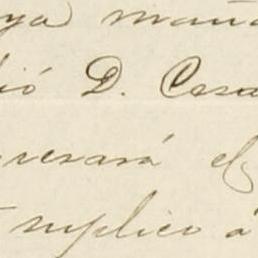 ya maña
dió D. Cesa
resará el
suplico á